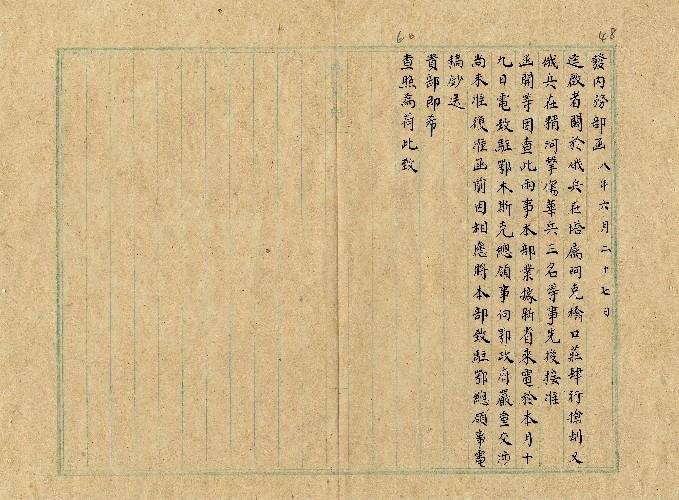 48
發內務部函 八年六月二十七日
逕啟者關於俄兵在塔屬阿克橋口莊肆行搶刼又
俄兵在精河擊傷華兵三名等事先後接准
函開等因查此兩事本部業據新省來電於本月十
九日電致駐鄂木斯克總領事向鄂政府嚴重交涉
尚未准復准函前因相應將本部致駐鄂總領事電
稿鈔送
貴部即希
查照為荷此致
60